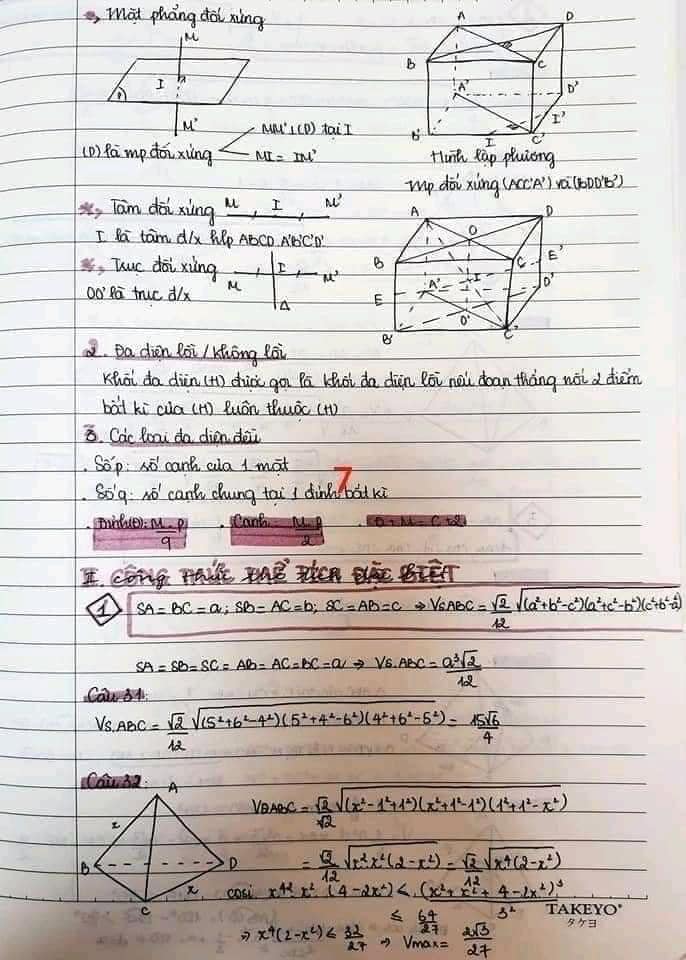 *, Mặt phẳng đối xứng
M
I
P
M'
(P) là mp đối xứng
MM' ⊥ (P) tại I
MI = IM'
A D
B C
A' D'
B' I I' C'
Hình lập phương
Mp đối xứng (ACC'A') và (BDD'B')
*, Tâm đối xứng M I M'
I là tâm đ/x hlp ABCD A'B'C'D'
*, Trục đối xứng M I M'
Δ
OO' là trục đ/x
A D
O
B C E'
E A' I D'
O'
B' C'
2. Đa diện lồi / không lồi
Khối đa diện (H) được gọi là khối đa diện lồi nếu đoạn thẳng nối 2 điểm
bất kì của (H) luôn thuộc (H)
3. Các loại đa diện đều
. Số p: số cạnh của 1 mặt
7
. Số q: số cạnh chung tại 1 đỉnh bất kì
. Đỉnh(Đ): M.p/q . Cạnh: M.p/2 . Đ + M = C + 2
II. CÔNG THỨC THỂ TÍCH ĐẶC BIỆT
1 SA = BC = a; SB = AC = b; SC = AB = c ⇒ VSABC = √2/12 √(a²+b²-c²)(a²+c²-b²)(c²+b²-a²)
SA = SB = SC = AB = AC = BC = a ⇒ VS.ABC = a³√2/12
Câu 31:
VS.ABC = √2/12 √(5²+6²-4²)(5²+4²-6²)(4²+6²-5²) = 15√6/4
Câu 32:
A
x
B D
x
C
VDABC = √2/√2 √(x²-1²+1²)(x²+1²-1²)(1²+1²-x²)
= √2/12 √x².x²(2-x²) = √2/12 √x⁴(2-x²)
cosi x². x². (4-2x²) ≤ (x²+x²+4-2x²)³/3²
≤ 64/27
⇒ x⁴(2-x²) ≤ 32/27 ⇒ Vmax = 2√3/27
TAKEYO®
タケヨ